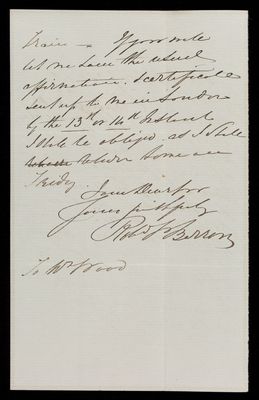 Train — If you will
let me have the usual
affirmation & certificate
sent up to me in London
by the 13th or 14th Instant
I shall be obliged, as I shall
return home on
Friday.
I am Dear Sir
Yours faithfully
To Mr Wood